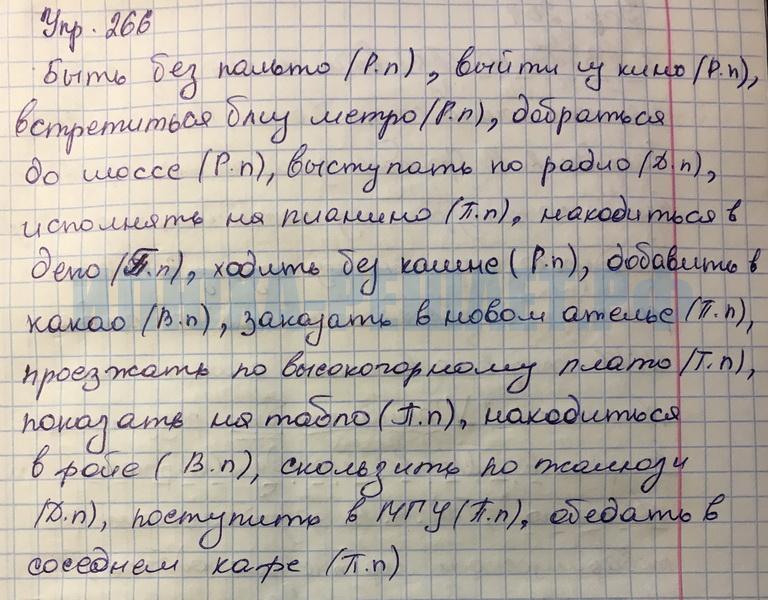 Упр. 266
Быть без пальто (Р.п), выйти из кино (Р.п),
встретиться близ метро (Р.п), добраться
до шоссе (Р.п), выступать по радио (Д.п),
исполнять на пианино (П.п), находиться в
депо (П.п), ходить без кашне (Р.п), добавить в
какао (В.п), заказать в новом ателье (П.п),
проезжать по высокогорному плато (Т.п),
показать на табло (П.п), находиться
в фойе (В.п), скользить по жалюзи
(Д.п), поступить в МПУ (П.п), обедать в
соседнем кафе (П.п)